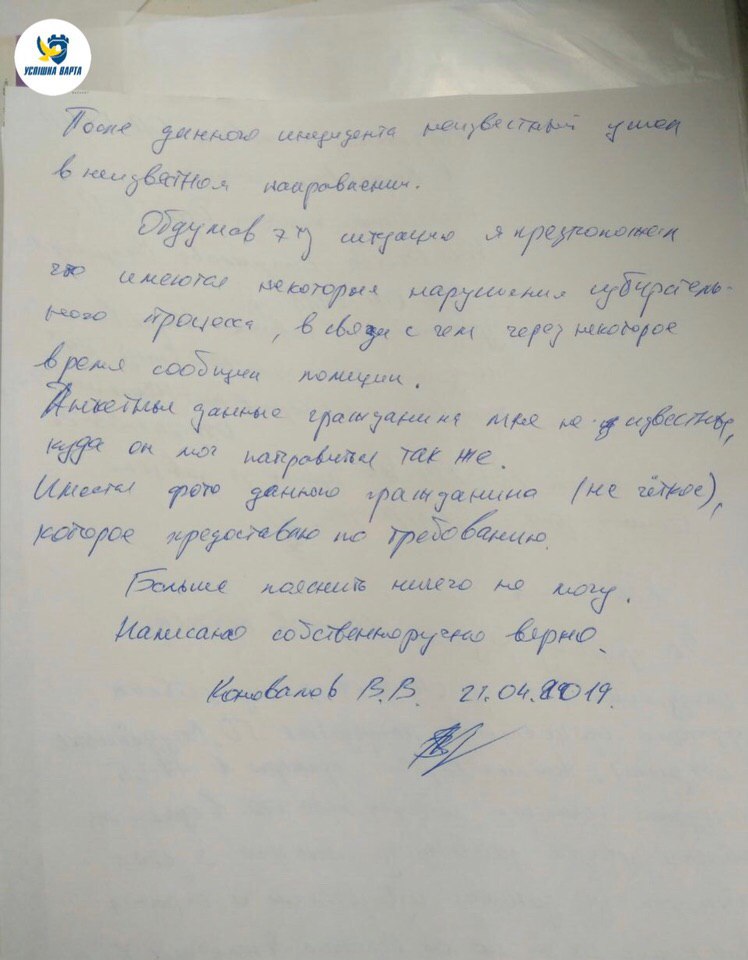 УСПІШНА ВАРТА
После данного инцидента неизвестный ушел
в неизвестном направлении.
Обдумав эту ситуацию я предположил
что имеются некоторые нарушения избиратель-
ного процесса, в связи с чем через некоторое
время сообщил полиции.
Анкетные данные гражданина мне не известны,
куда он мог направиться так же.
Имеется фото данного гражданина (не чёткое),
которое предоставлю по требованию.
Больше пояснить ничего не могу.
Написано собственноручно верно.
Коновалов В.В. 21.04.2019